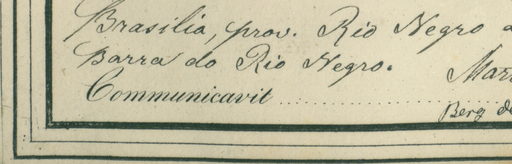 Brasilia, prov. Rio Negro a
Barra do Rio Negro.
Mar
Communicavit
Berg de